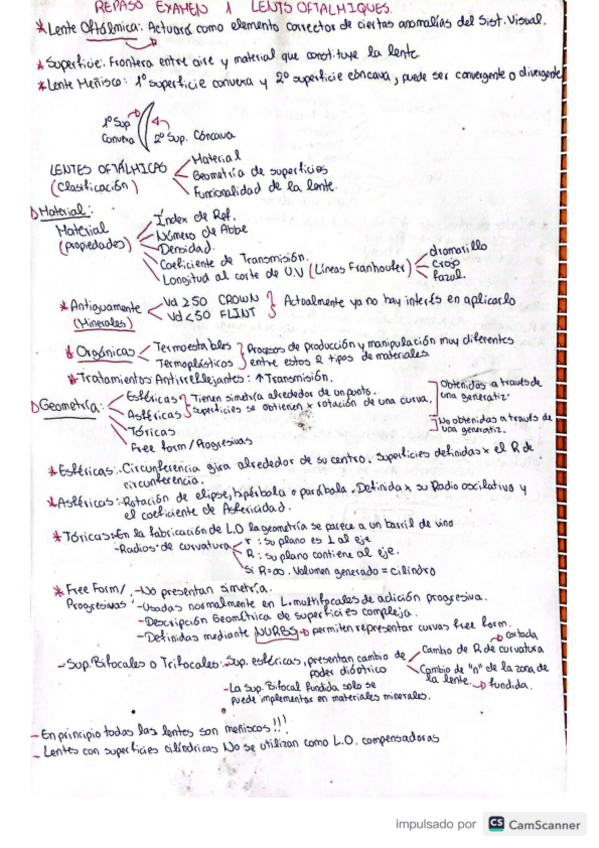 REPASO EXAMEN 1 LENTS OFTALMIQUES.
* Lente Oftálmica: Actuará como elemento corrector de ciertas anomalías del Sist. Visual.
* Superficie: Frontera entre aire y material que constituye la lente
* Lente Menisco: 1º superficie convexa y 2º superficie cóncava, puede ser convergente o divergente
1º Sup Convexa
2º Sup. Cóncava
LENTES OFTÁLMICAS (Clasificación)
Material
Geometría de superficies
Funcionalidad de la lente.
Material:
Material (propiedades)
Índex de Ref.
Número de Abbe
Densidad.
Coeficiente de Transmisión.
Longitud al corte de U.V (Líneas Franhoufer)
d:amarillo
c:rojo
f:azul.
* Antiguamente (Minerales)
Vd ≥50 CROWN
Vd <50 FLINT
Actualmente ya no hay interés en aplicarlo
* Orgánicas
Termoestables
Termoplásticos
Procesos de producción y manipulación muy diferentes
entre estos 2 tipos de materiales.
* Tratamientos Antirreflejantes: ↑ Transmisión.
Geometría:
Esféricas
Asféricas
Tienen simetría alrededor de un punto.
Superficies se obtienen x rotación de una curva.
Obtenidas a través de
una generatiz.
Tóricas
Free form / Progresivas
No obtenidas a través de
una generatiz.
* Esféricas: Circunferencia gira alrededor de su centro. Superficies definidas x el R de
circunferencia.
* Asféricas: Rotación de elipse, hipérbola o parábola. Definida x su Radio osculativo y
el coeficiente de Asfericidad.
* Tóricas: En la fabricación de L.O la geometría se parece a un barril de vino
- Radios de curvatura
r : su plano es ⊥ al eje
R : su plano contiene al eje.
Si R=∞. Volumen generado = cilindro
* Free Form/ Progresivas:
- No presentan simetría.
- Usadas normalmente en L. multifocales de adición progresiva.
- Descripción Geométrica de superficies compleja.
- Definidas mediante NURBS → permiten representar curvas free form.
- Sup. Bifocales o Trifocales: Sup. esféricas, presentan cambio de
poder dióptrico
Cambio de R de curvatura
→ tallada
Cambio de "n" de la zona de
la lente. → fundida.
- La Sup. Bifocal Fundida solo se
puede implementar en materiales minerales.
- En principio todas las lentes son meniscos!!!
- Lentes con superficies cilíndricas No se utilizan como L.O. compensadoras
impulsado por CS CamScanner